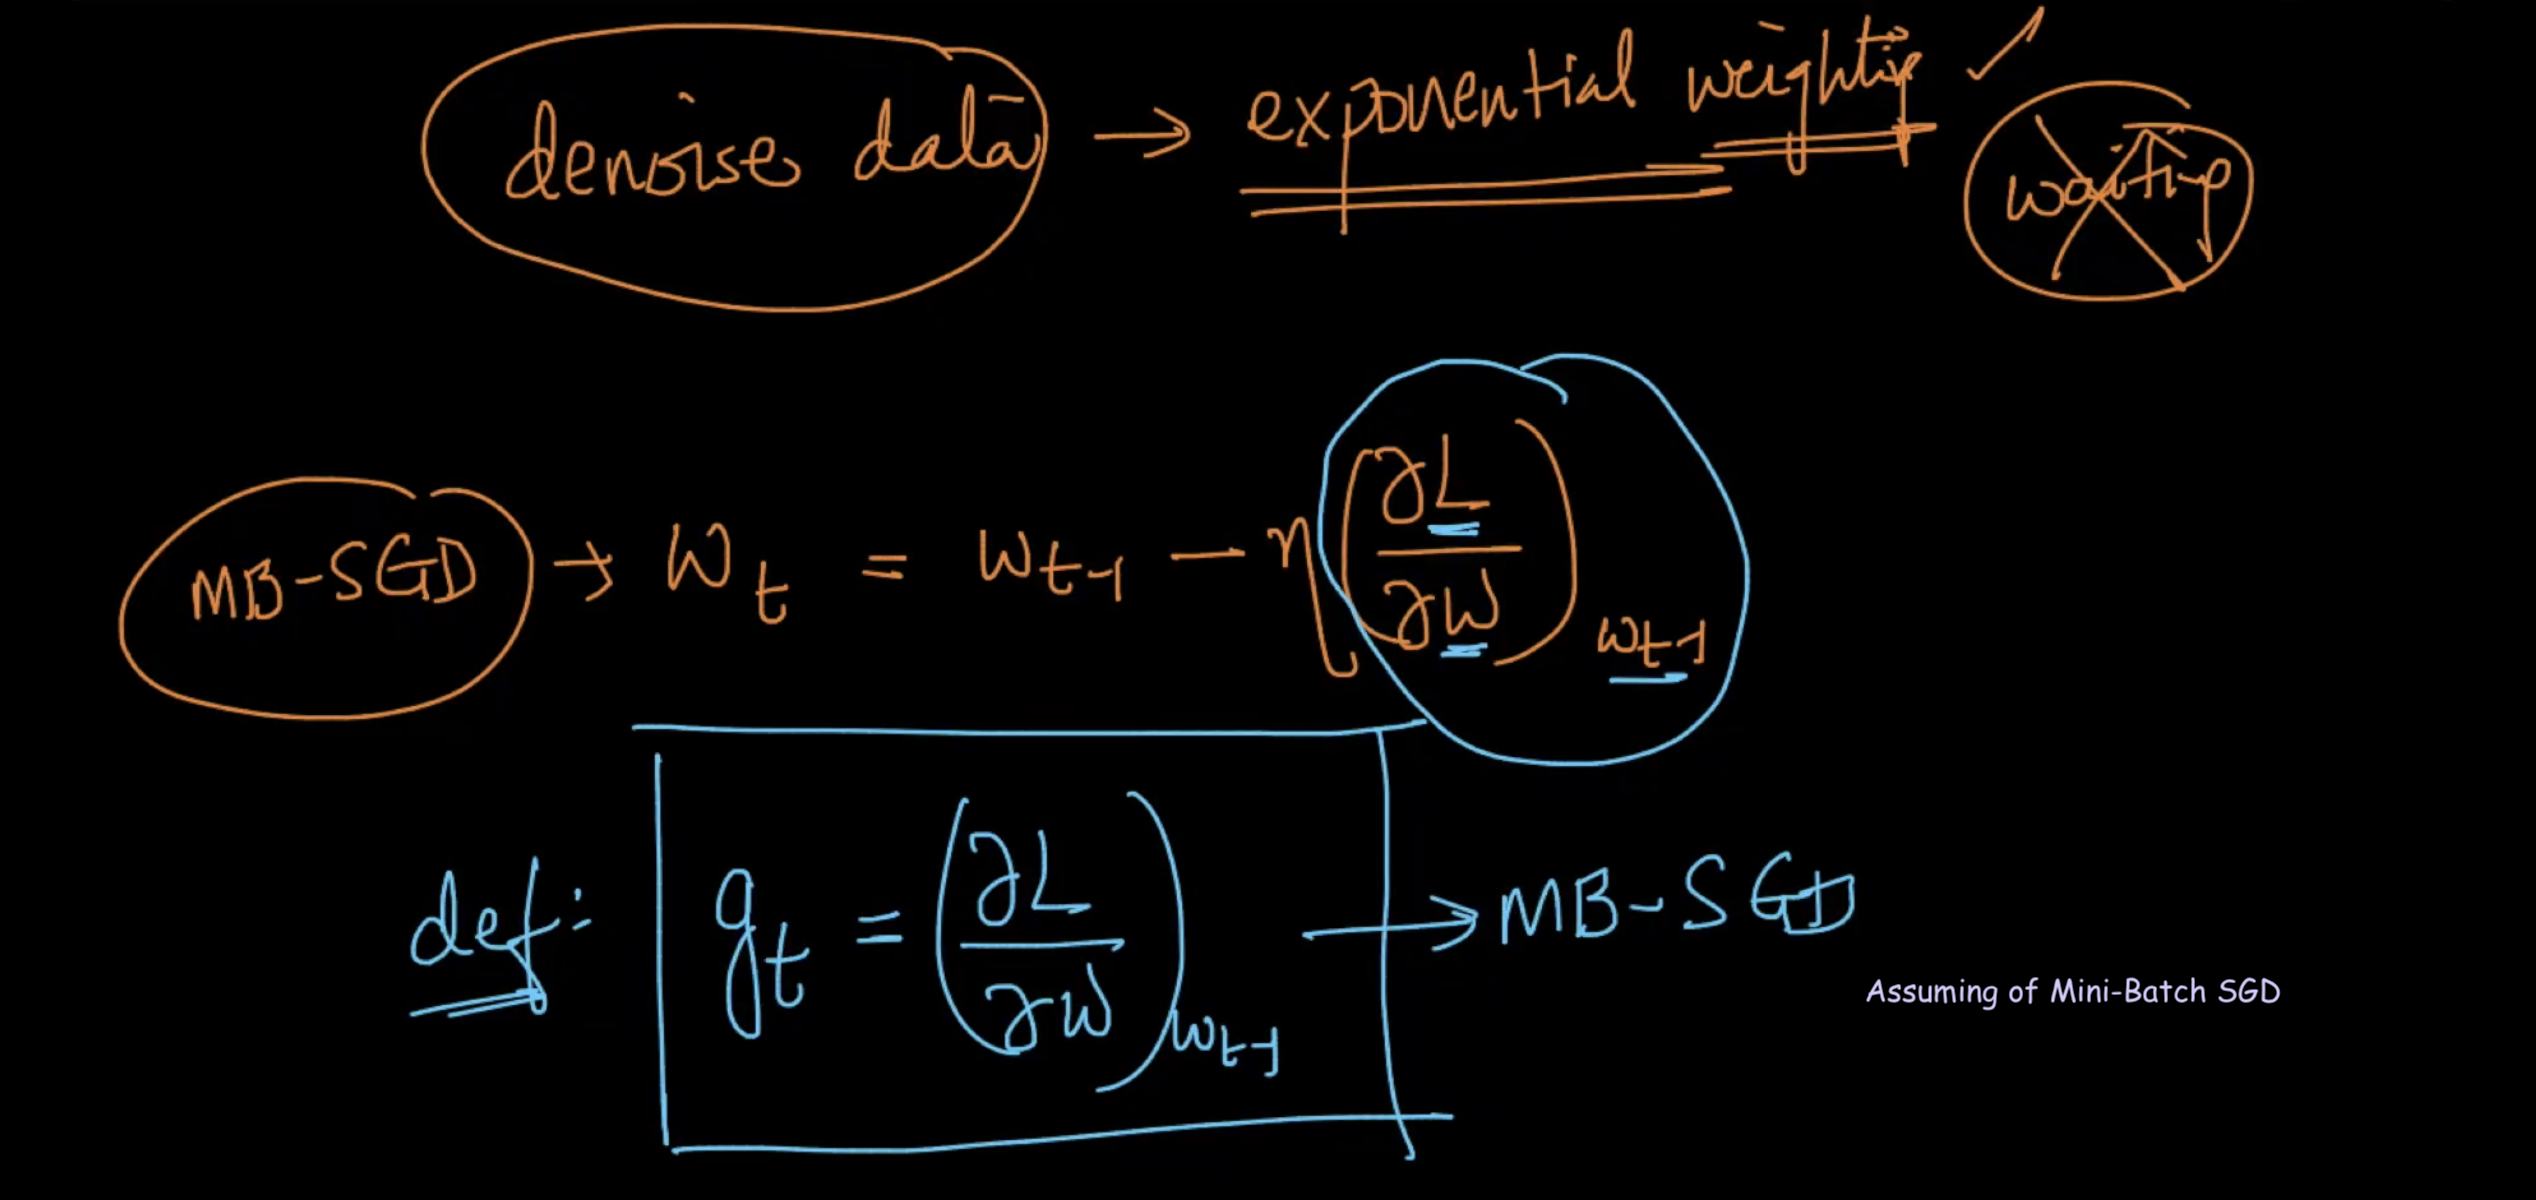 denoise data → exponential weighting ✓
waiting
MB-SGD → w_t = w_{t-1} - η (∂L/∂w)_{w_{t-1}}
def: g_t = (∂L/∂w)_{w_{t-1}} → MB-SGD
Assuming of Mini-Batch SGD